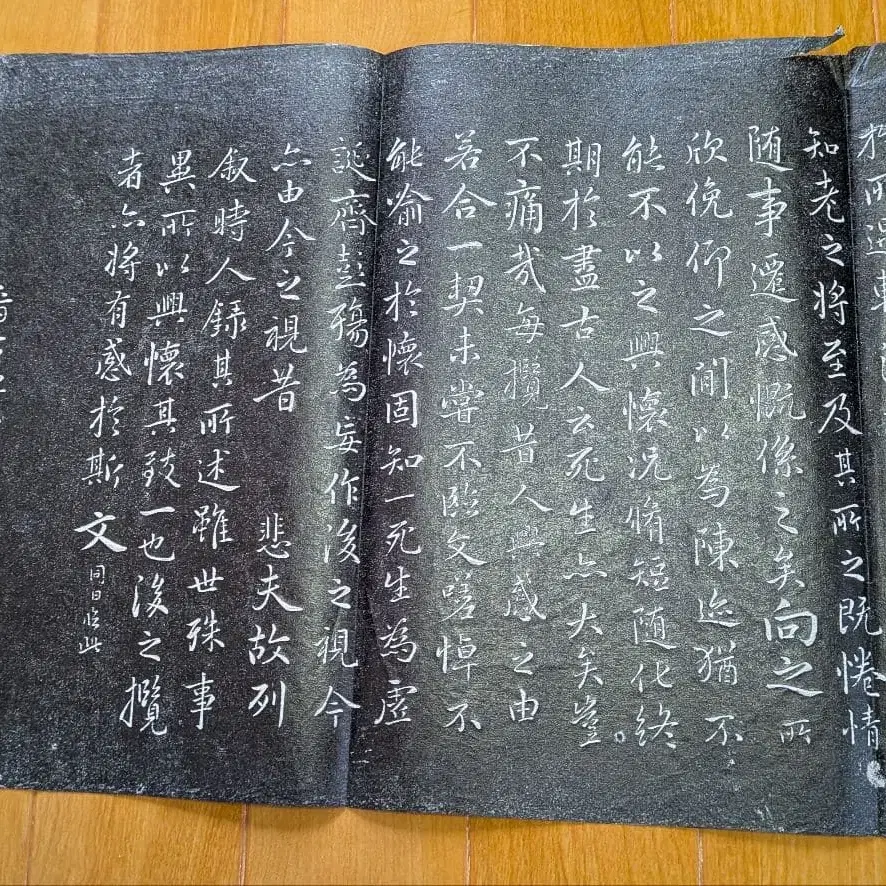 於所遇
知老之將至及其所之既惓情
随事遷感慨係之矣向之所
欣俛仰之閒以為陳迹猶不
能不以之興懷況脩短随化終
期於盡古人云死生亦大矣豈
不痛哉每攬昔人興感之由
若合一契未嘗不臨文嗟悼不
能喻之於懷固知一死生為虛
誕齊彭殤為妄作後之視今
亦由今之視昔 悲夫故列
叙時人録其所述雖世殊事
異所以興懷其致一也後之攬
者亦將有感於斯文
同日临此